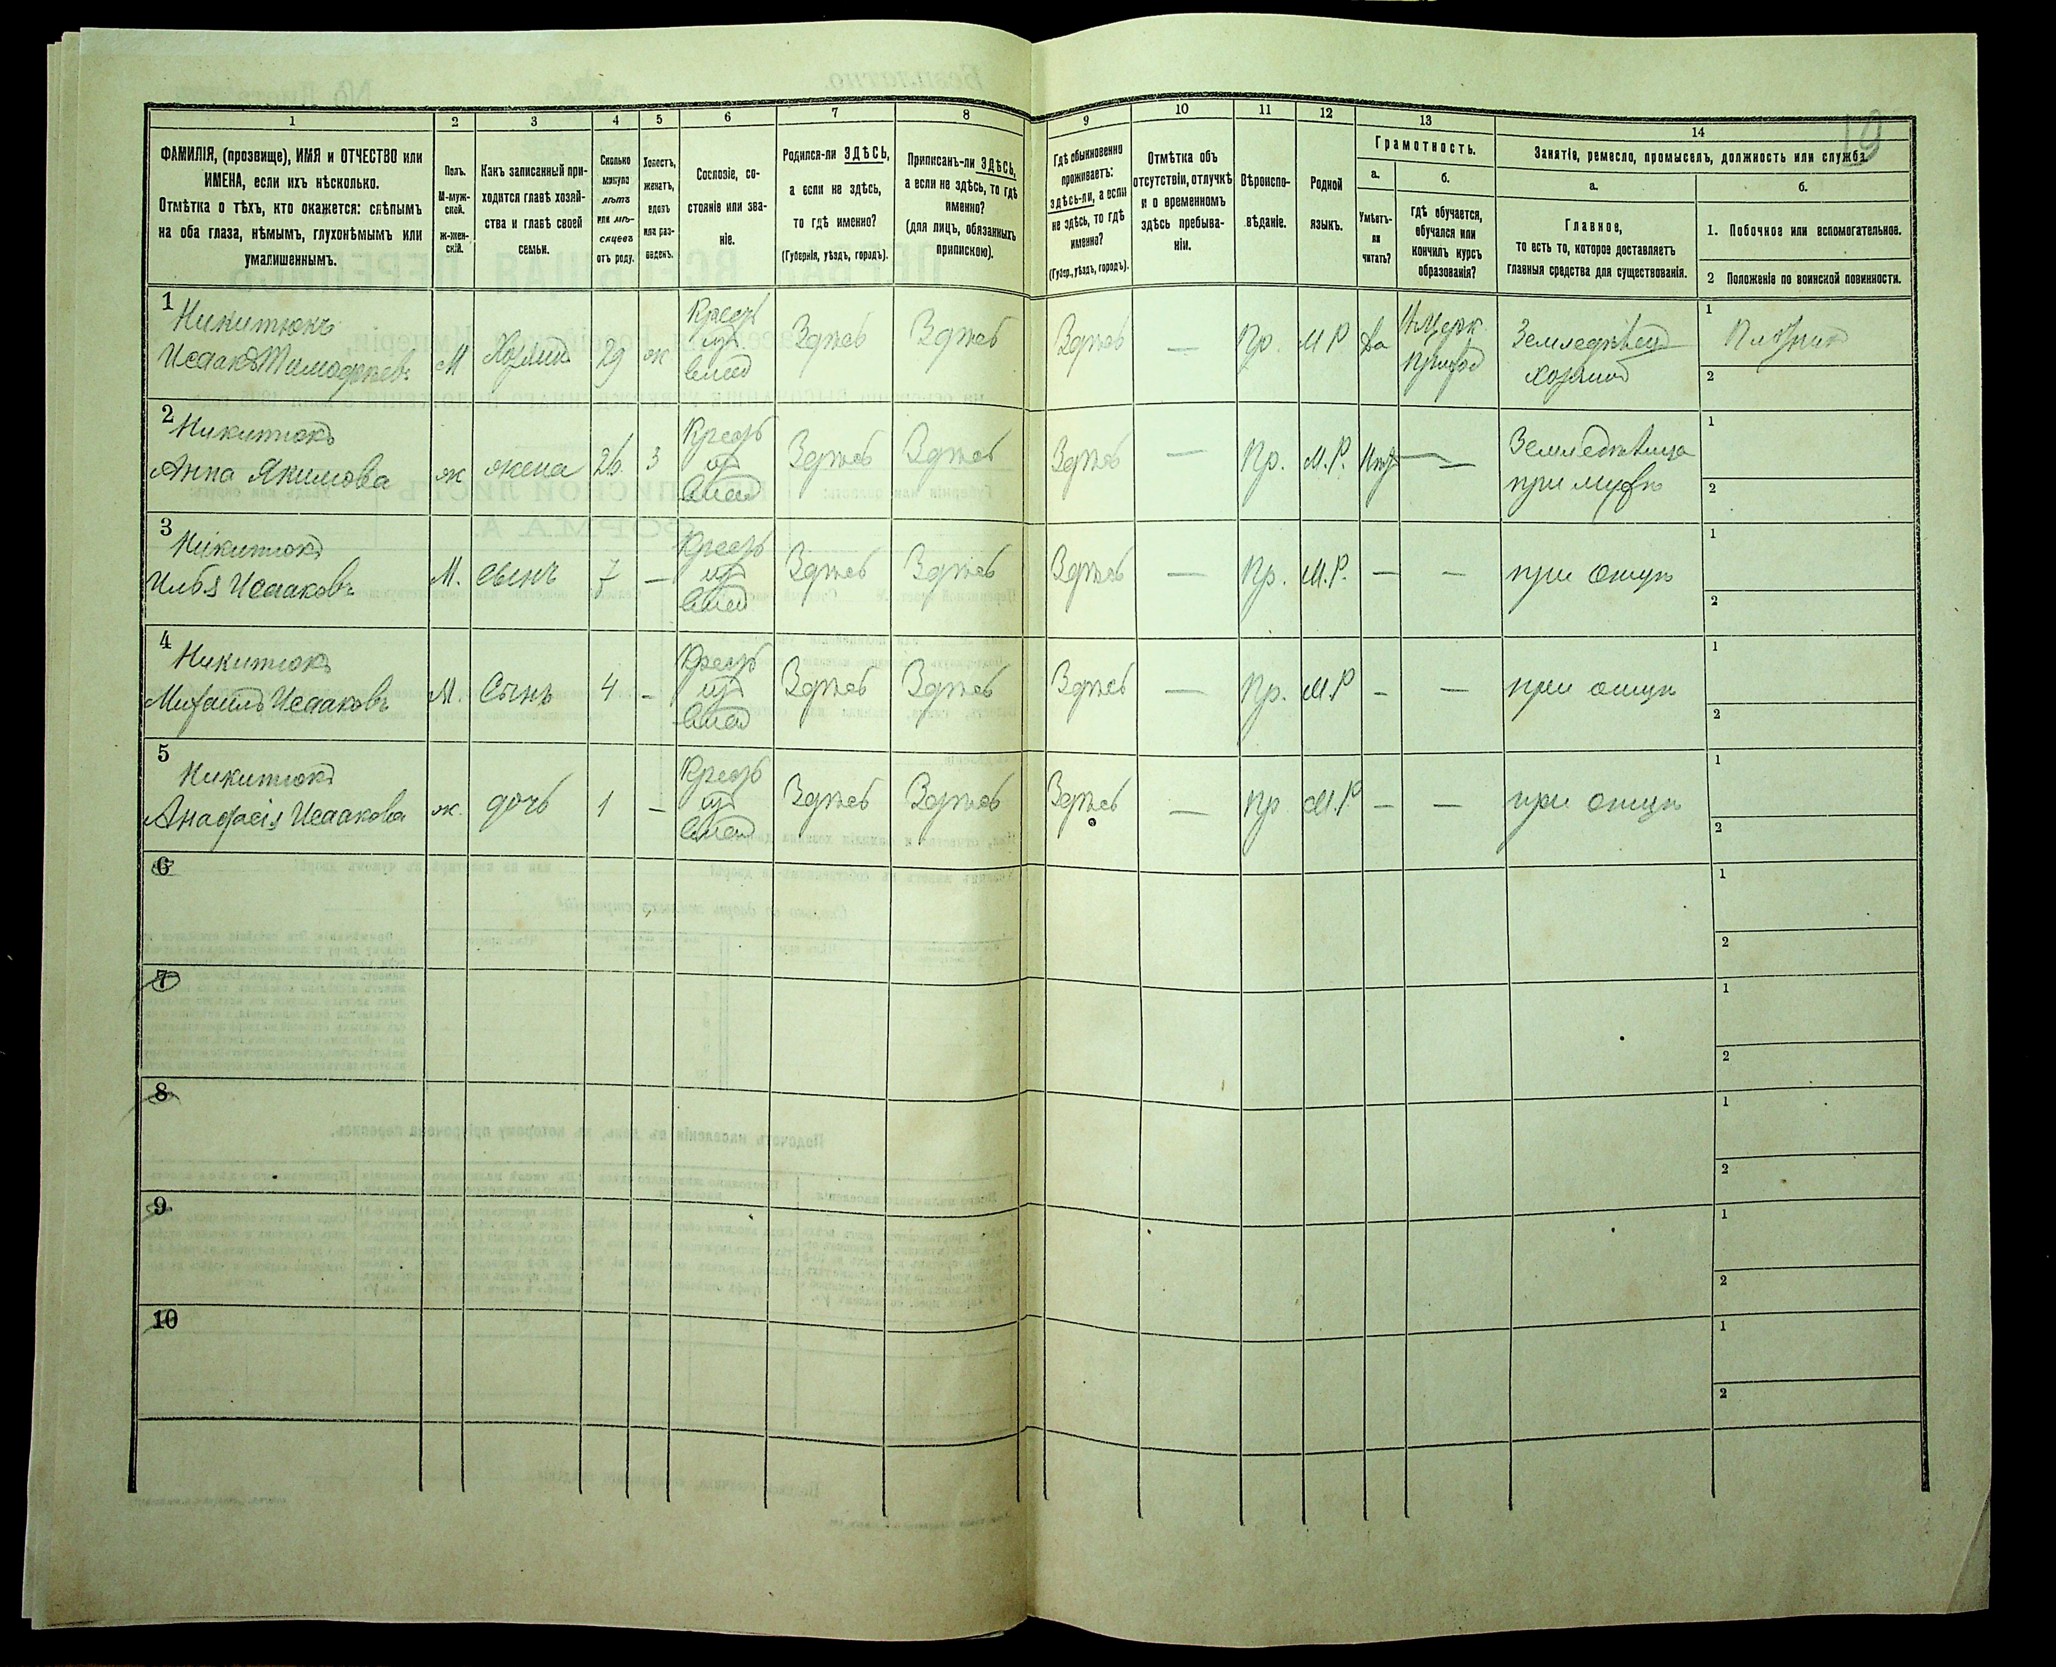 19
1 2 3 4 5 6 7 8 9 10 11 12 13 14
ФАМИЛІЯ, (прозвище), ИМЯ и ОТЧЕСТВО или
ИМЕНА, если ихъ нѣсколько.
Отмѣтка о тѣхъ, кто окажется: слѣпымъ
на оба глаза, нѣмымъ, глухонѣмымъ или
умалишеннымъ.
Полъ.
М-муж-
ской.
Ж-жен-
скій.
Какъ записанный при-
ходится главѣ хозяй-
ства и главѣ своей
семьи.
Сколько
минуло
лѣтъ
или мѣ-
сяцевъ
отъ роду.
Холостъ,
женатъ,
вдовъ
или раз-
веденъ.
Сословіе, со-
стояніе или зва-
ніе.
Родился-ли ЗДѢСЬ,
а если не здѣсь,
то гдѣ именно?
(Губернія, уѣздъ, городъ).
Приписанъ-ли ЗДѢСЬ,
а если не здѣсь, то гдѣ
именно?
(для лицъ, обязанныхъ
припискою).
Гдѣ обыкновенно
проживаетъ:
здѣсь-ли, а если
не здѣсь, то гдѣ
именно?
(Губер., уѣздъ, городъ).
Отмѣтка объ
отсутствіи, отлучкѣ
и о временномъ
здѣсь пребыва-
ніи.
Вѣроиспо-
вѣданіе.
Родной
языкъ.
Грамотность.
а.
Умѣетъ-
ли
читать?
б.
гдѣ обучается,
обучался или
кончилъ курсъ
образованія?
Занятіе, ремесло, промыселъ, должность или служба.
а.
Главное,
то есть то, которое доставляетъ
главныя средства для существованія.
б.
1. Побочное или вспомогательное.
2 Положеніе по воинской повинности.
1
Никитюкъ
Исаакъ Тимофеевъ
М хозяинъ 29 ж
Крест
изъ
влад
Здѣсь Здѣсь Здѣсь — Пр. М.Р. да
Земледѣлецъ
хозяинъ
1 Плотникъ
2
2
Никитюкъ
Анна Якимова
ж жена 26 з
Крест
изъ
влад
Здѣсь Здѣсь Здѣсь — Пр. М.Р. Нѣтъ —
Земледѣлица
при мужѣ
1
2
3
Никитюкъ
Илья Исааковъ
М. сынъ 7 —
Крест
изъ
влад
Здѣсь Здѣсь Здѣсь — Пр. М.Р. — — при отцѣ
1
2
4
Никитюкъ
Михаилъ Исааковъ
М. Сынъ 4 -
Крест
изъ
влад
Здѣсь Здѣсь Здѣсь — Пр. М.Р - — при отцѣ
1
2
5
Никитюкъ
Анафасія Исаакова
ж. дочь 1 —
Крест
изъ
влад
Здѣсь Здѣсь Здѣсь — Пр М.Р — — при отцѣ
1
2
6
1
2
7
1
2
8
1
2
9
1
2
10
1
2